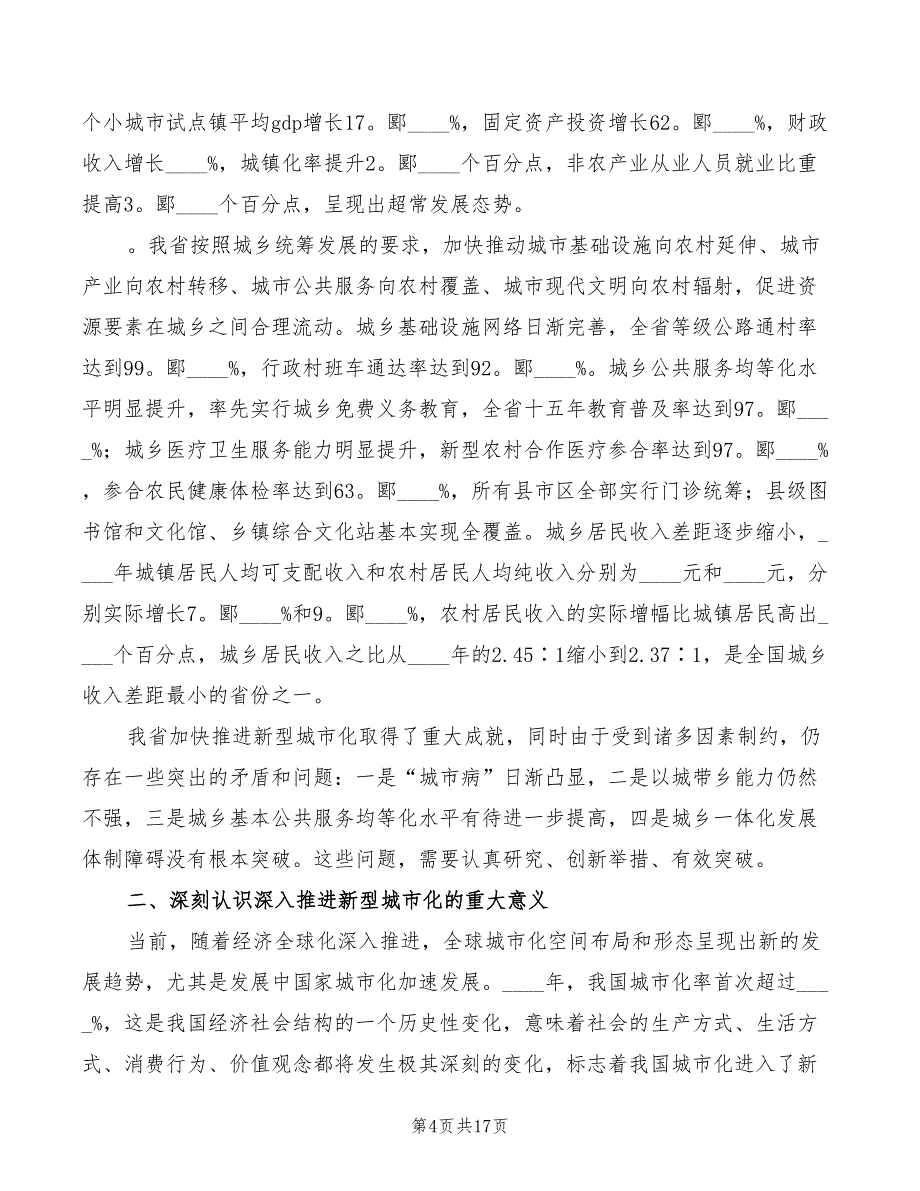 个小城市试点镇平均gdp增长17。郾____%，固定资产投资增长62。郾____%，财政
收入增长____%，城镇化率提升2。郾____个百分点，非农产业从业人员就业比重
提高3。郾____个百分点，呈现出超常发展态势。
。我省按照城乡统筹发展的要求，加快推动城市基础设施向农村延伸、城市
产业向农村转移、城市公共服务向农村覆盖、城市现代文明向农村辐射，促进资
源要素在城乡之间合理流动。城乡基础设施网络日渐完善，全省等级公路通村率
达到99。郾____%，行政村班车通达率达到92。郾____%。城乡公共服务均等化水
平明显提升，率先实行城乡免费义务教育，全省十五年教育普及率达到97。郾___
_%；城乡医疗卫生服务能力明显提升，新型农村合作医疗参合率达到97。郾____%
，参合农民健康体检率达到63。郾____%，所有县市区全部实行门诊统筹；县级图
书馆和文化馆、乡镇综合文化站基本实现全覆盖。城乡居民收入差距逐步缩小，_
___年城镇居民人均可支配收入和农村居民人均纯收入分别为____元和____元，分
别实际增长7。郾____%和9。郾____%，农村居民收入的实际增幅比城镇居民高出_
___个百分点，城乡居民收入之比从____年的2.45∶1缩小到2.37∶1，是全国城乡
收入差距最小的省份之一。
我省加快推进新型城市化取得了重大成就，同时由于受到诸多因素制约，仍
存在一些突出的矛盾和问题：一是“城市病”日渐凸显，二是以城带乡能力仍然
不强，三是城乡基本公共服务均等化水平有待进一步提高，四是城乡一体化发展
体制障碍没有根本突破。这些问题，需要认真研究、创新举措、有效突破。
二、深刻认识深入推进新型城市化的重大意义
当前，随着经济全球化深入推进，全球城市化空间布局和形态呈现出新的发
展趋势，尤其是发展中国家城市化加速发展。____年，我国城市化率首次超过___
_%，这是我国经济社会结构的一个历史性变化，意味着社会的生产方式、生活方
式、消费行为、价值观念都将发生极其深刻的变化，标志着我国城市化进入了新
第4页共17页